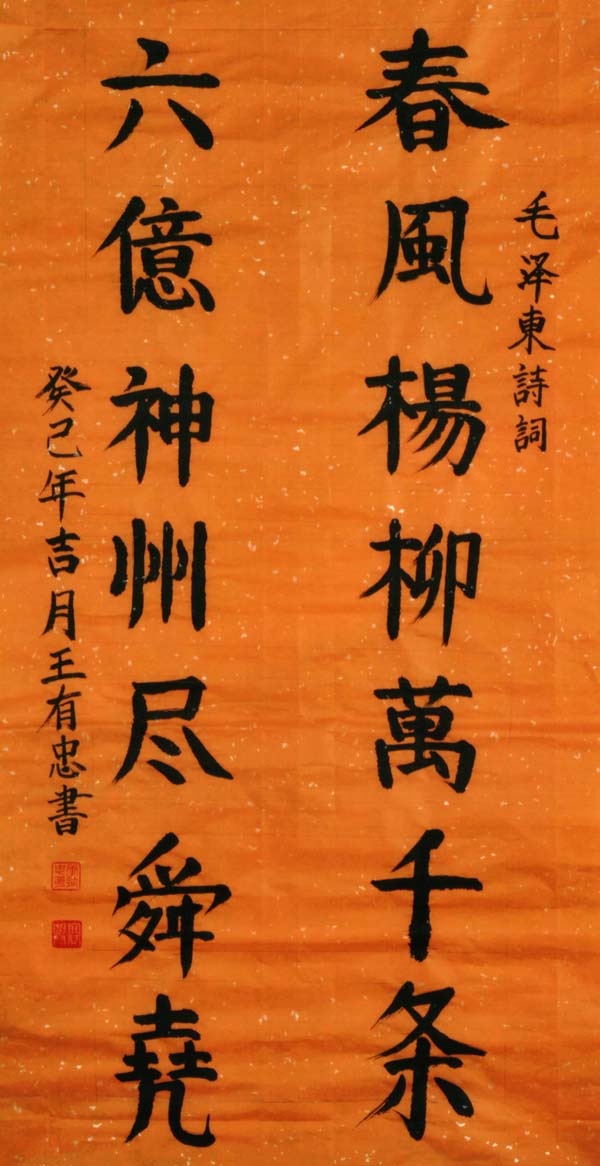 毛泽東詩詞
春風楊柳萬千条
六億神州尽舜堯
癸己年吉月王有忠書